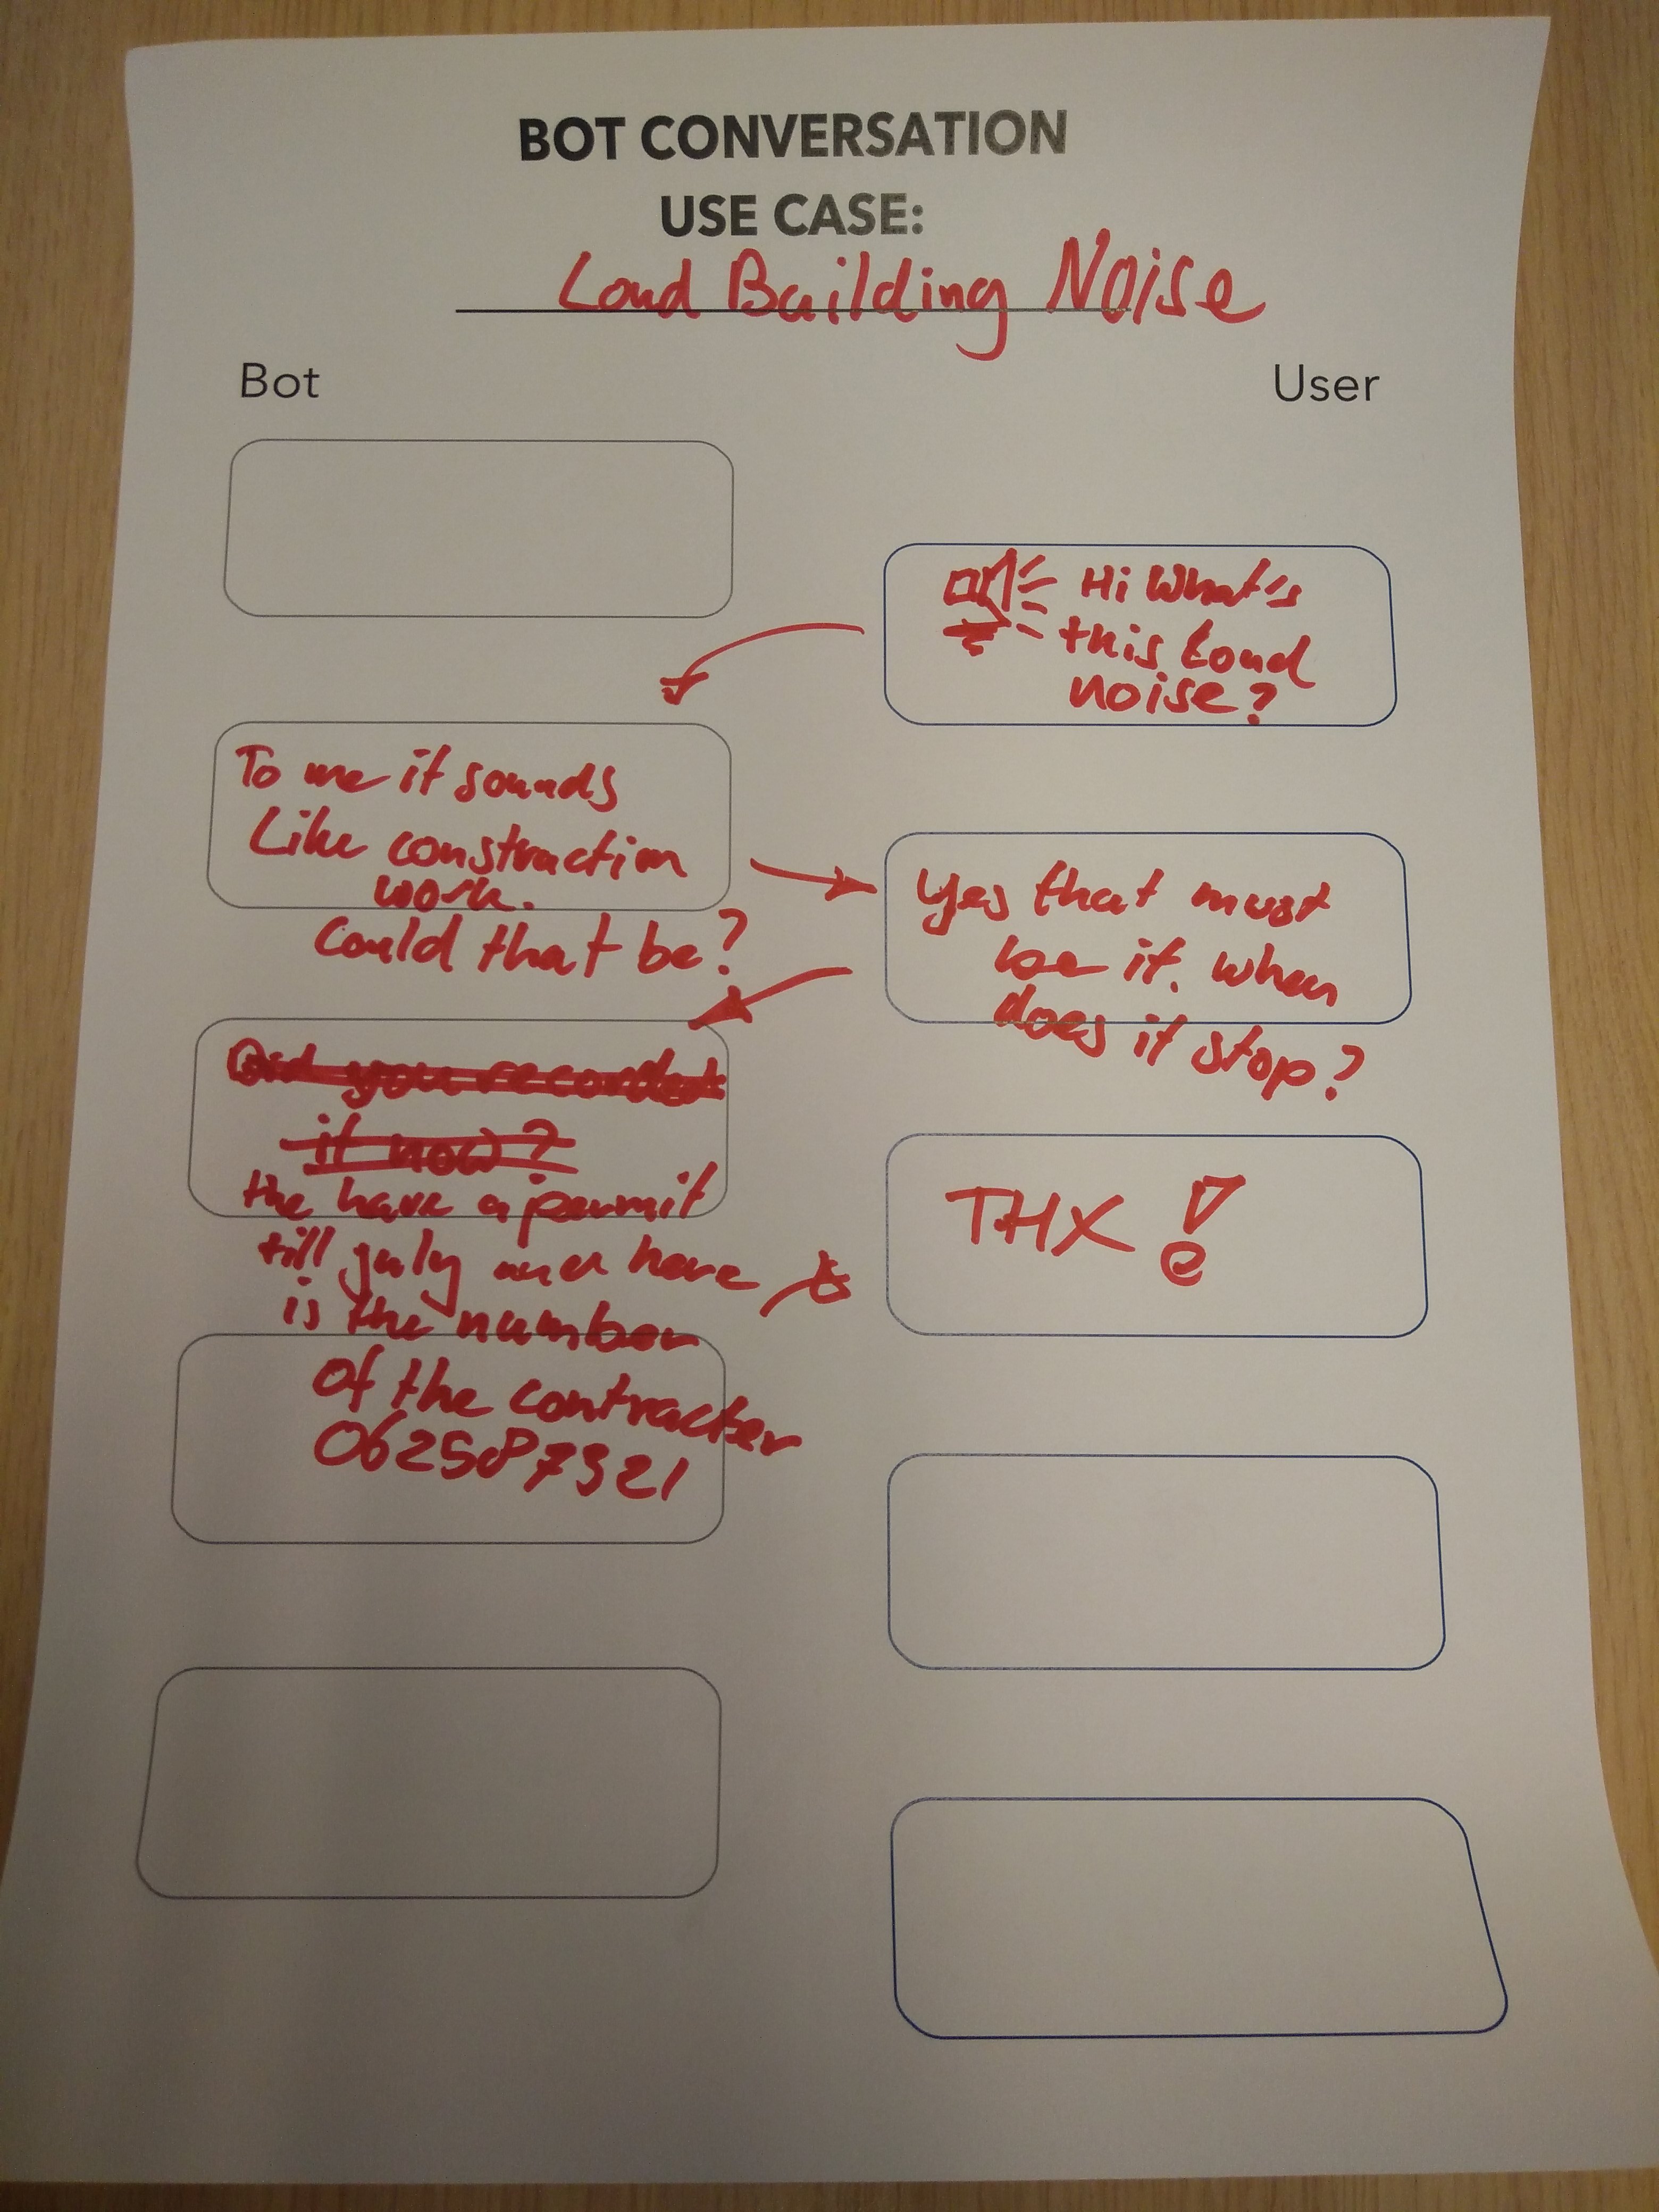 BOT CONVERSATION
USE CASE:
Loud Building Noise
Bot
User
Hi What's
this Loud
noise?
To me it sounds
Like constraction
work.
Could that be?
Yes that must
be it. when
does it stop?
Did you recorded
it now?
the have a permit
till july and here
is the number
of the contracter
062587321
THX!